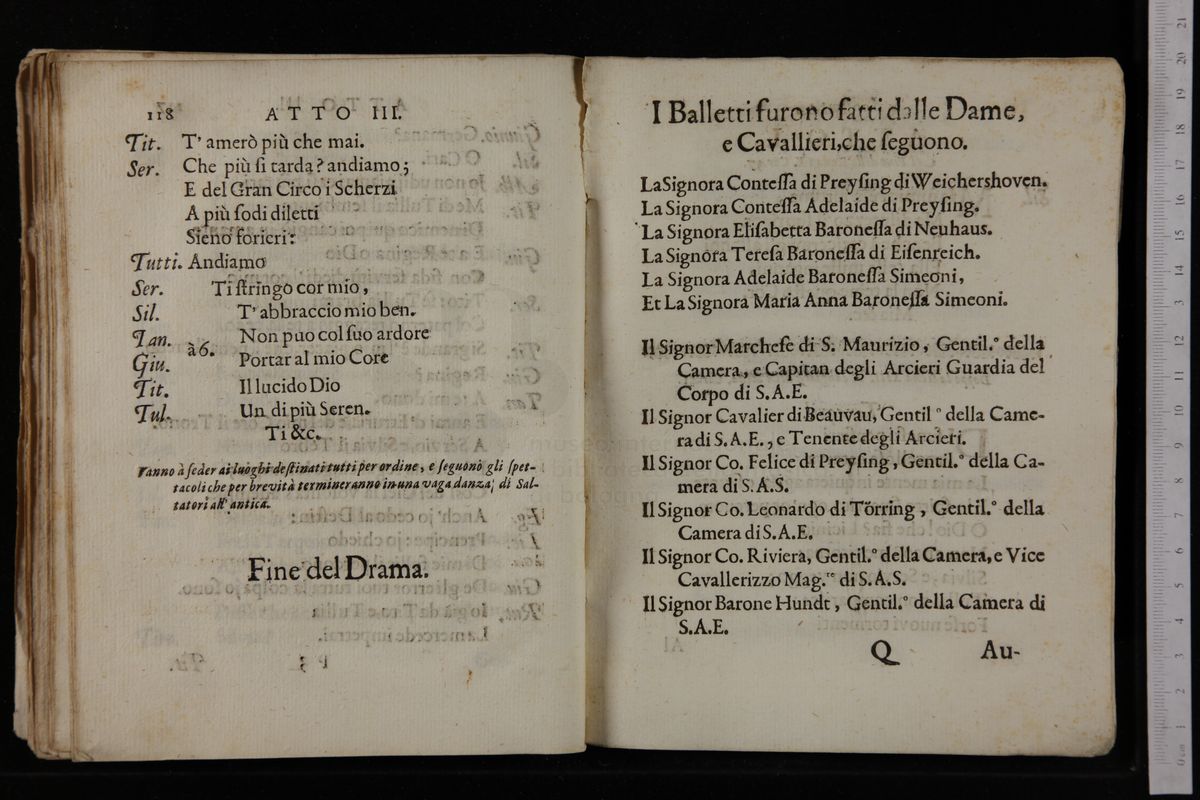 118 ATTO III.
Tit. T' amerò più che mai.
Ser. Che più ſi tarda? andiamo;
E del Gran Circo i Scherzi
A più ſodi diletti
Sieno forieri:
Tutti. Andiamo
Ser. Ti ſtringo cor mio,
Sil. T' abbraccio mio ben.
Ian. à 6. Non puo col ſuo ardore
Giu. Portar al mio Core
Tit. Il lucido Dio
Tul. Un di più Seren.
Ti &c.
Vanno à ſeder ai luoghi deſtinati tutti per ordine, e ſeguono gli ſpet-
tacoli che per brevità termineranno in una vaga danza, di Sal-
tatori all' antica.
Fine del Drama.
I Balletti furono fatti dalle Dame,
e Cavallieri, che ſeguono.
La Signora Conteſſa di Preyſing di Weichershoven.
La Signora Conteſſa Adelaide di Preyſing.
La Signora Eliſabetta Baroneſſa di Neuhaus.
La Signora Tereſa Baroneſſa di Eiſenreich.
La Signora Adelaide Baroneſſa Simeoni,
Et La Signora Maria Anna Baroneſſa Simeoni.
Il Signor Marcheſe di S. Maurizio, Gentil.º della
Camera, e Capitan degli Arcieri Guardia del
Corpo di S.A.E.
Il Signor Cavalier di Beauvau, Gentil º della Came-
ra di S.A.E., e Tenente degli Arcieri.
Il Signor Co. Felice di Preyſing, Gentil.º della Ca-
mera di S.A.S.
Il Signor Co. Leonardo di Törring, Gentil.º della
Camera di S.A.E.
Il Signor Co. Riviera, Gentil.º della Camera, e Vice
Cavallerizzo Mag.re di S.A.S.
Il Signor Barone Hundt, Gentil.º della Camera di
S.A.E.
Q Au-